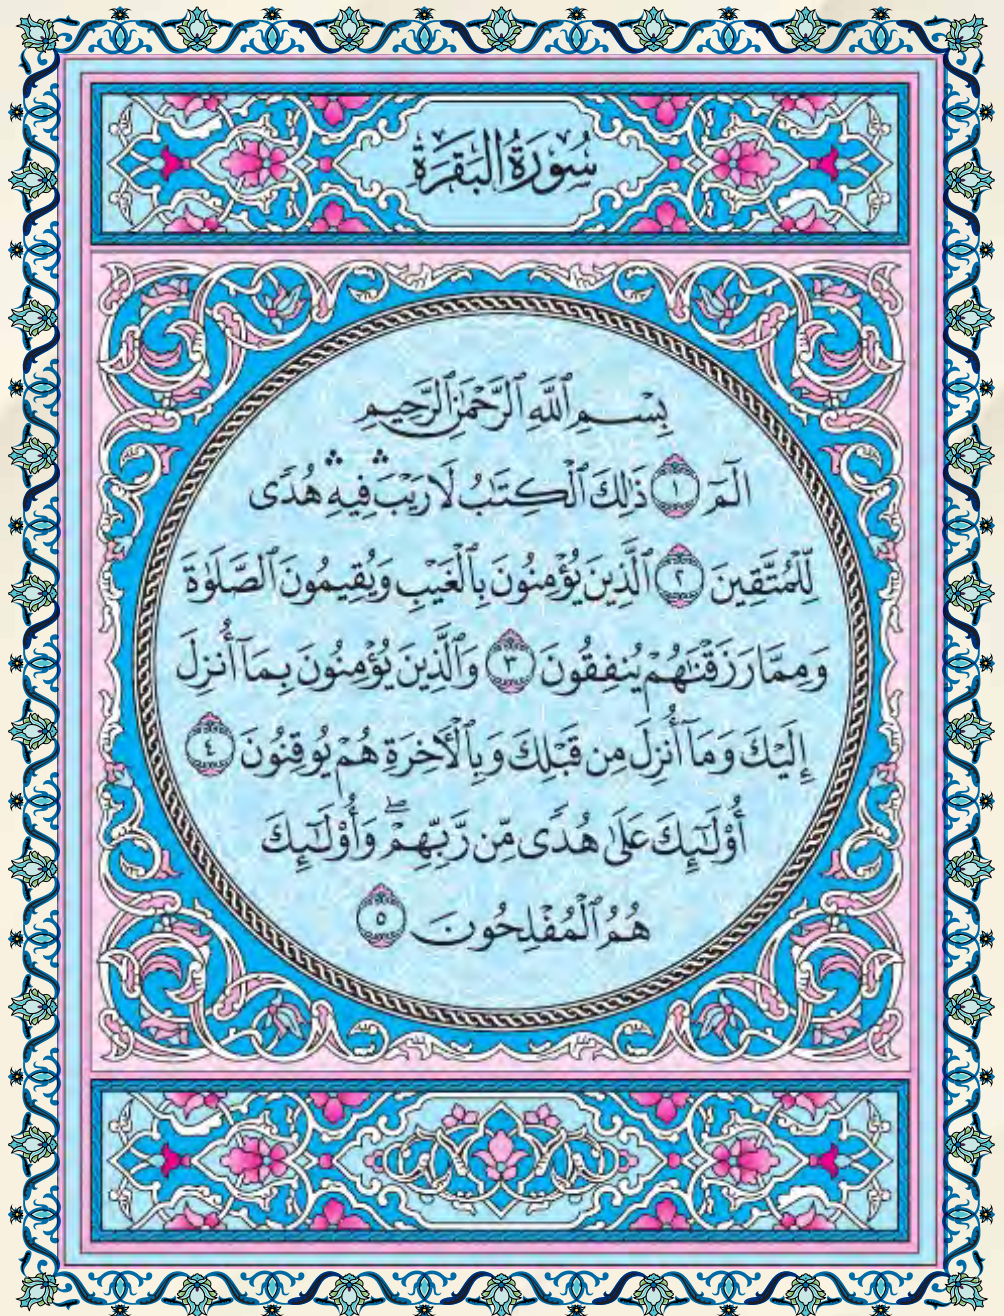 سُورَةُ البَقَرَةِ
بِسْمِ ٱللَّهِ ٱلرَّحْمَٰنِ ٱلرَّحِيمِ
الٓمٓ ١ ذَٰلِكَ ٱلْكِتَٰبُ لَا رَيْبَ ۛ فِيهِ ۛ هُدًى
لِّلْمُتَّقِينَ ٢ ٱلَّذِينَ يُؤْمِنُونَ بِٱلْغَيْبِ وَيُقِيمُونَ ٱلصَّلَوٰةَ
وَمِمَّا رَزَقْنَٰهُمْ يُنفِقُونَ ٣ وَٱلَّذِينَ يُؤْمِنُونَ بِمَآ أُنزِلَ
إِلَيْكَ وَمَآ أُنزِلَ مِن قَبْلِكَ وَبِٱلْأَخِرَةِ هُمْ يُوقِنُونَ ٤
أُو۟لَٰٓئِكَ عَلَىٰ هُدًى مِّن رَّبِّهِمْ ۖ وَأُو۟لَٰٓئِكَ
هُمُ ٱلْمُفْلِحُونَ ٥